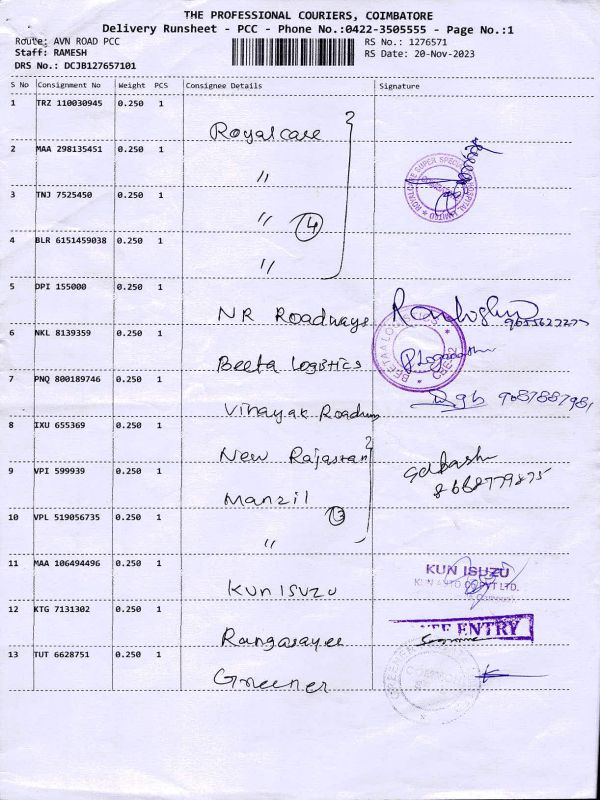 THE PROFESSIONAL COURIERS, COIMBATORE
Delivery Runsheet - PCC - Phone No.:0422-3505555 - Page No.:1
Route: AVN ROAD PCC
RS No.: 1276571
Staff: RAMESH
RS Date: 20-Nov-2023
DRS No.: DCJB127657101
S No Consignment No Weight PCS Consignee Details Signature
1 TRZ 110030945 0.250 1
Royalcare
2 MAA 298135451 0.250 1
"
3 TNJ 7525450 0.250 1
" 4
4 BLR 6151459038 0.250 1
"
5 DPI 155000 0.250 1
NR Roadways
6 NKL 8139359 0.250 1
Beeta Logistics
7 PNQ 800189746 0.250 1
9087887981
Vinayak Roadways
8 IXU 655369 0.250 1
New Rajastan
9 VPI 599939 0.250 1
8668779875
Manzil
10 VPL 519056735 0.250 1
3
"
11 MAA 106494496 0.250 1
KUN ISUZU
KUN ISUZU
12 KTG 7131302 0.250 1
ENTRY
Rangarayee
13 TUT 6628751 0.250 1
Greener